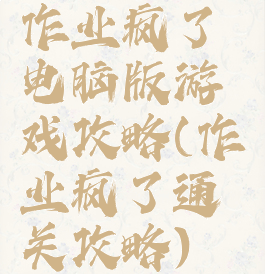 作业疯了
电脑版游
戏攻略(作
业疯了通
关攻略)